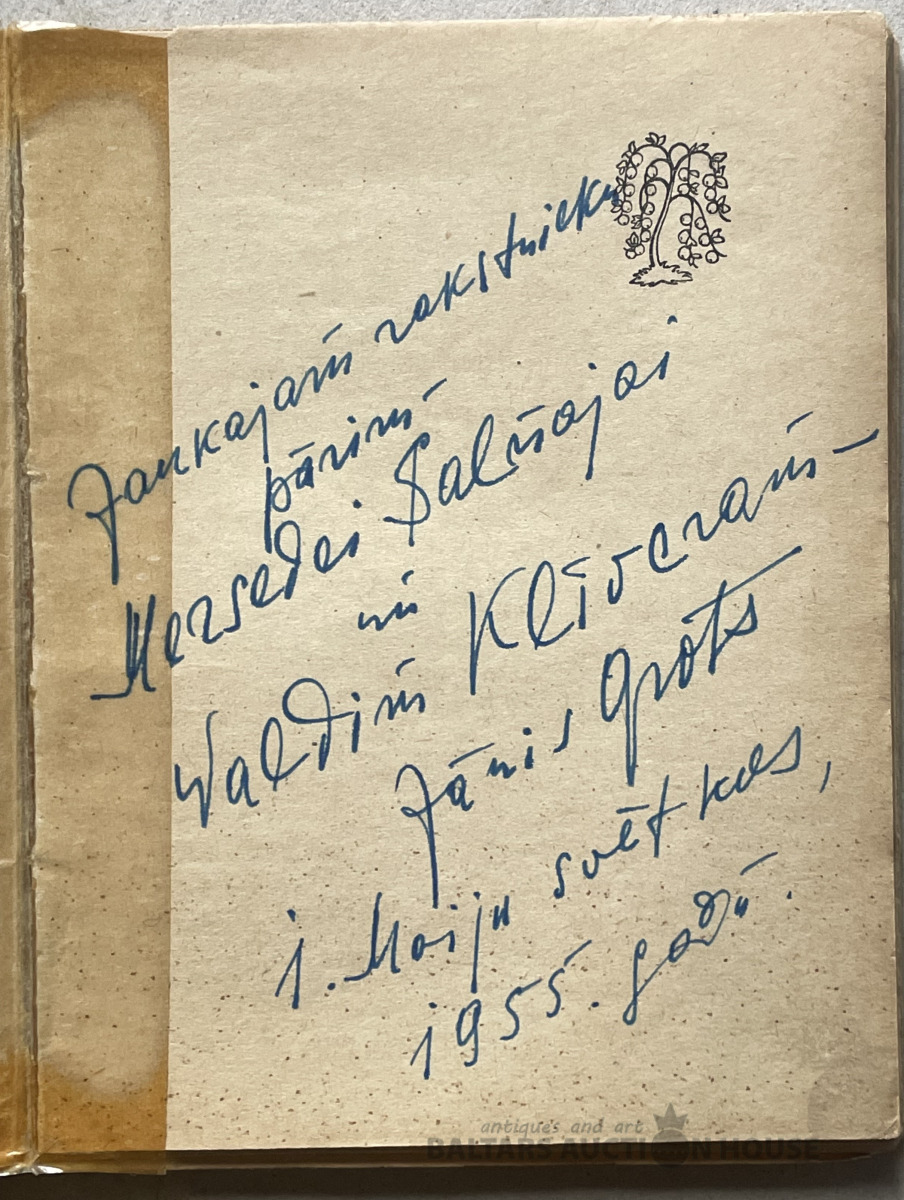 Jaukajam rakstnieku
pārim-
Mersedei Salnajai
un
Valdim Klīveram-
Jānis Grots
1. Maija svētkos,
1955. gadā.
antiques and art
BALTARS AUCTION HOUSE